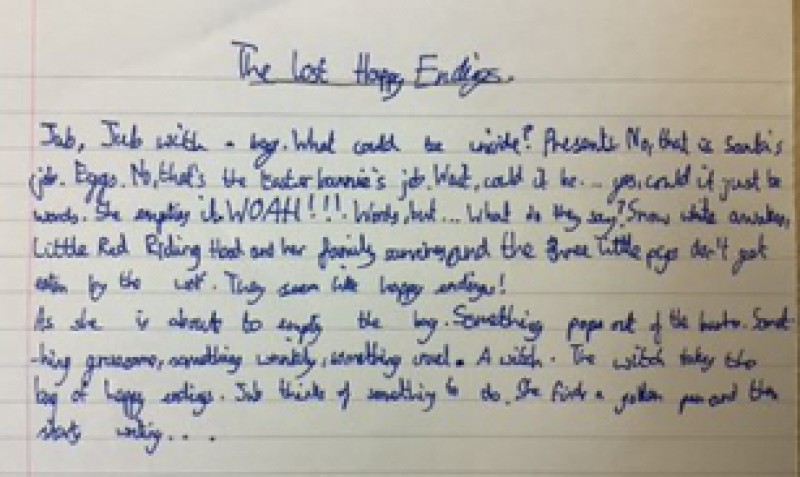 The Lost Happy Endings.
Jub, Jub with a bag. What could be inside? Presents No, that is Santa's
job. Eggs. No, that's the Easter bunnie's job. Wait, could it be... yes, could it just be
words. She empties it. WOAH!!!. Words, but... What do they say? Snow white awakes,
Little Red Riding Hood and her family survives, and the three little pigs don't get
eaten by the wolf. They seem like happy endings!
As she is about to empty the bag. Something pops out of the. Somet-
-hing gruesome, something wrinkly, something cruel. A witch. The witch takes the
bag of happy endings. Jub thinks of something to do. She finds a golden pen and then
starts writing...